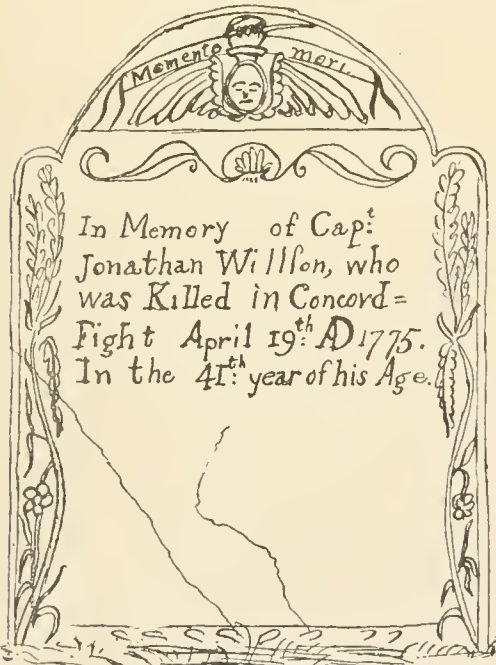 Memento mori.
In Memory of Cap.t
Jonathan Willſon, who
was Killed in Concord=
Fight April 19:th AD 1775.
In the 41:th year of his Age.